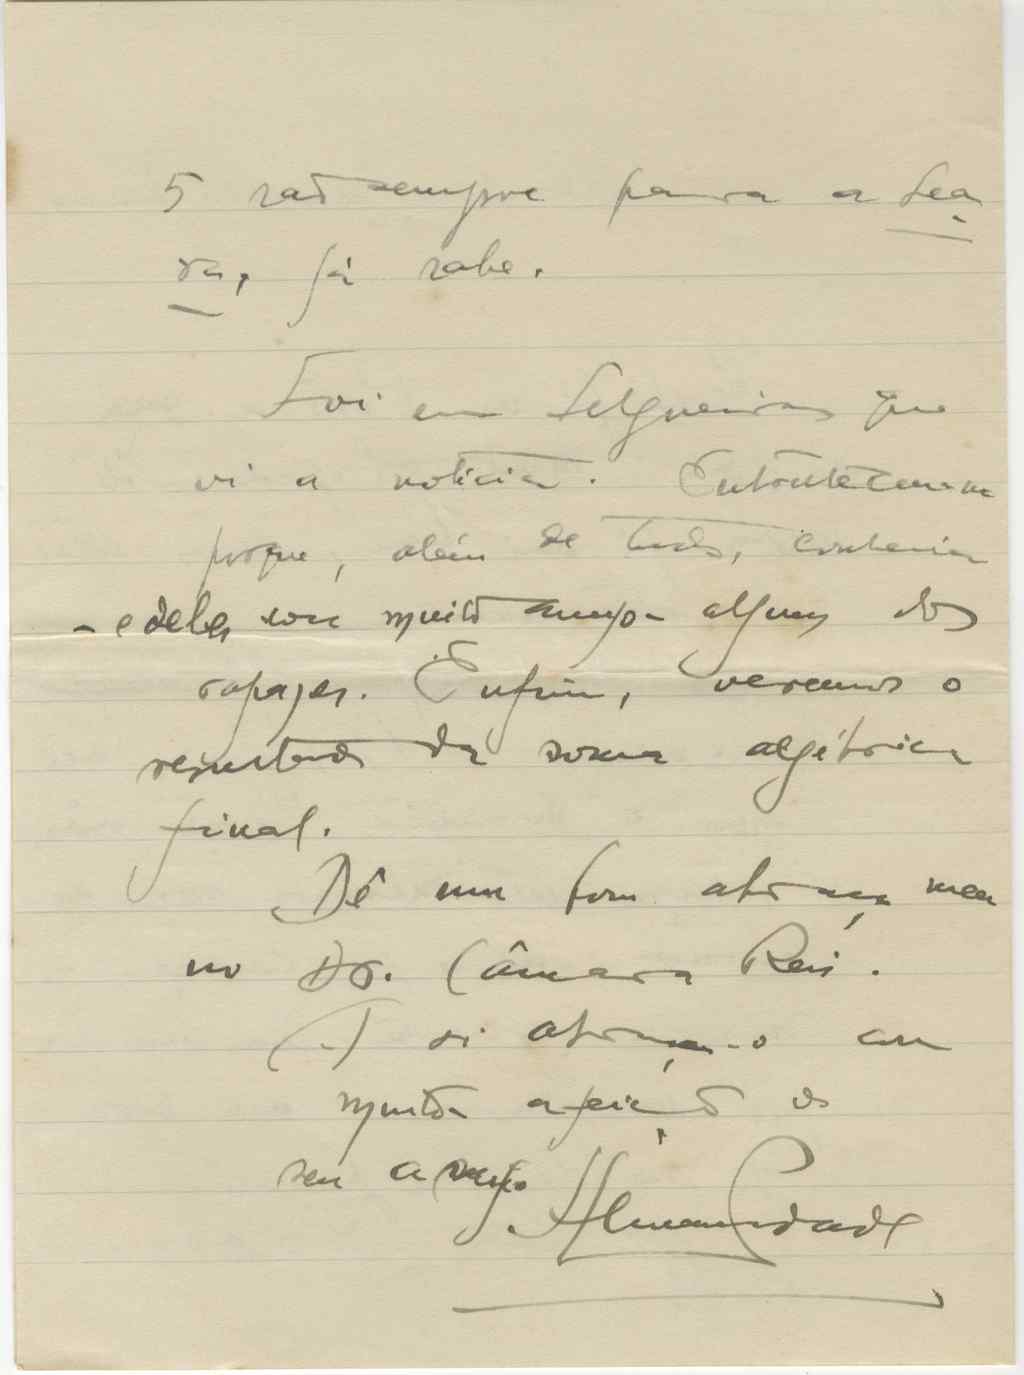 5 são sempre para a Sea
ra, já sabe.
Foi em Felgueiras que
vi a notícia.
porque, além de tudo, conhecia
- e deles sou muito amigo - alguns dos
rapazes. Enfim, veremos o
resultado da soma algébrica
final.
Dê um bom abraço meu
ao Dr. Câmara Reis.
A si abraça-o com
muita afeição o
seu amigo